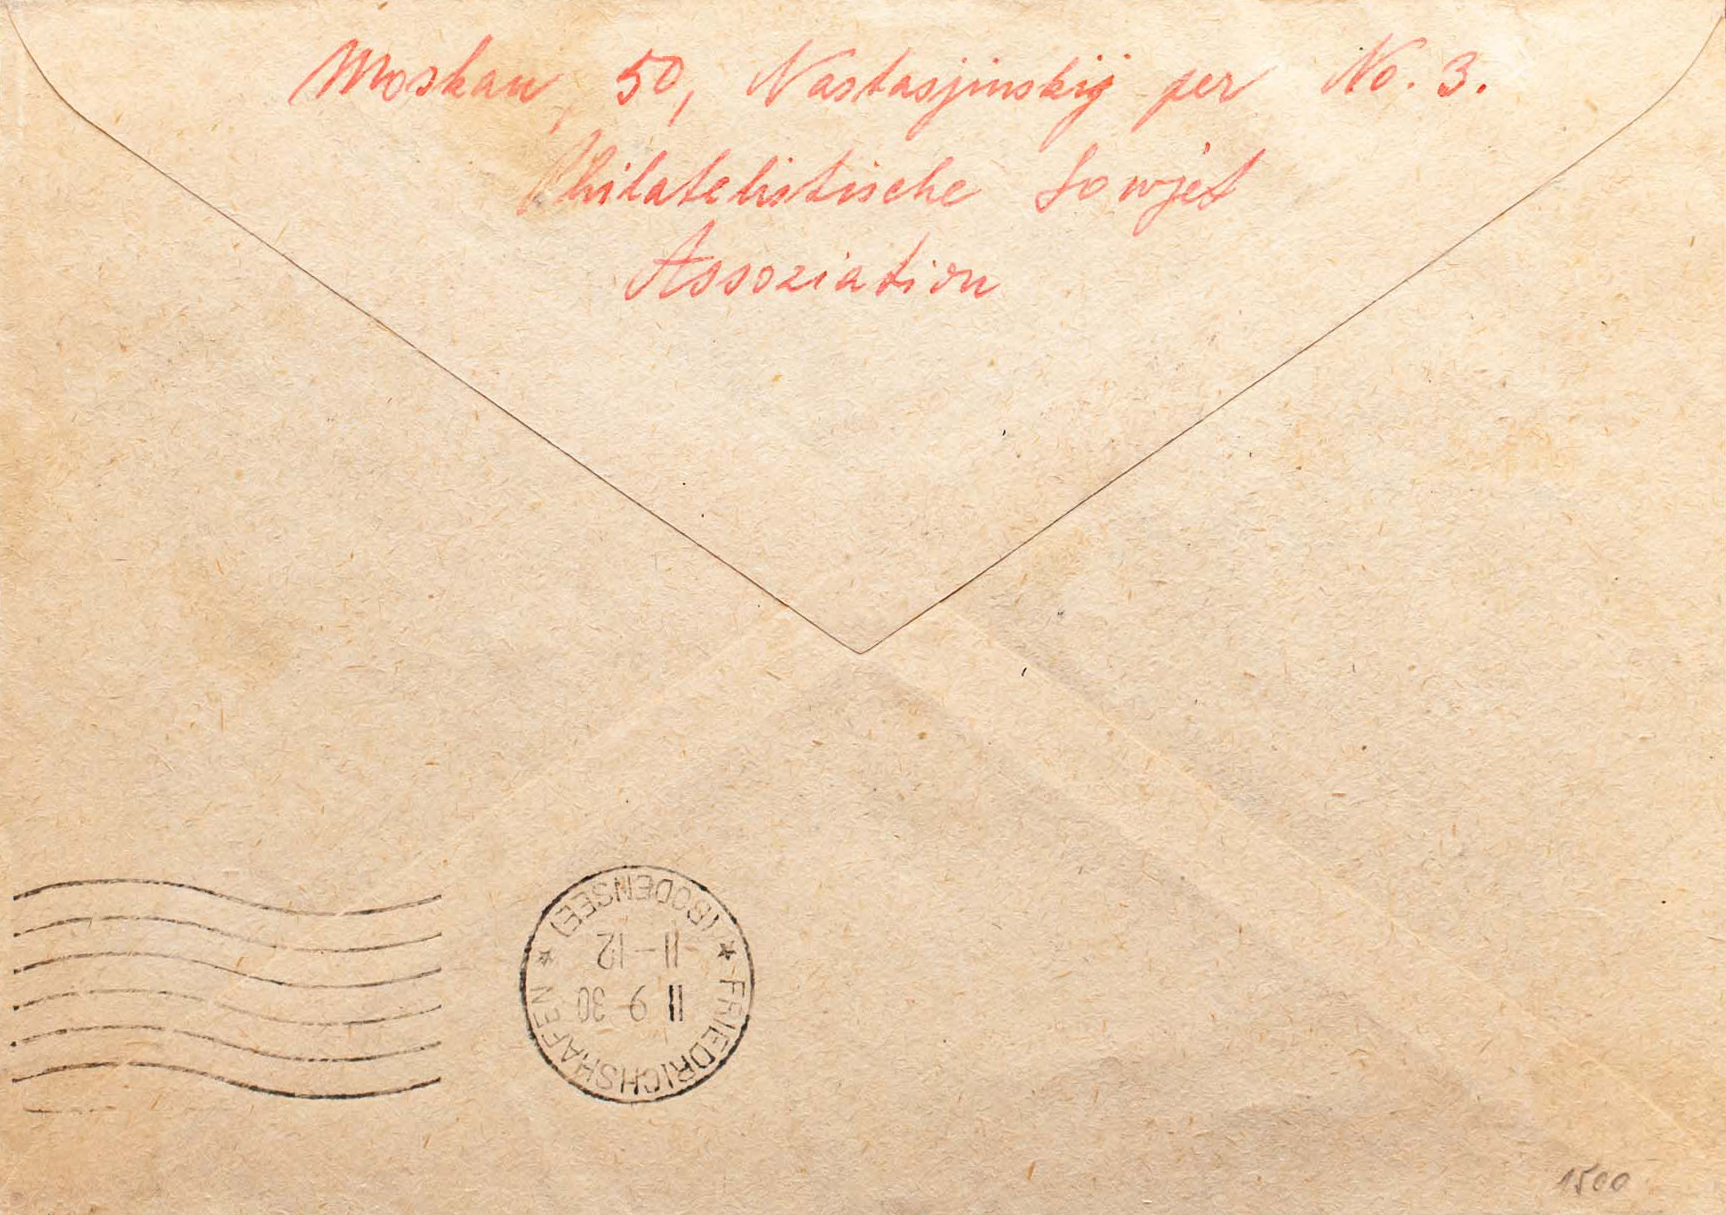 Moskau, 50, Nastasjinskij per No. 3.
Philatelistische Sowjet
Assoziation
FRIEDRICHSHAFEN
11 9 30
11-12
(BODENSEE)
1500